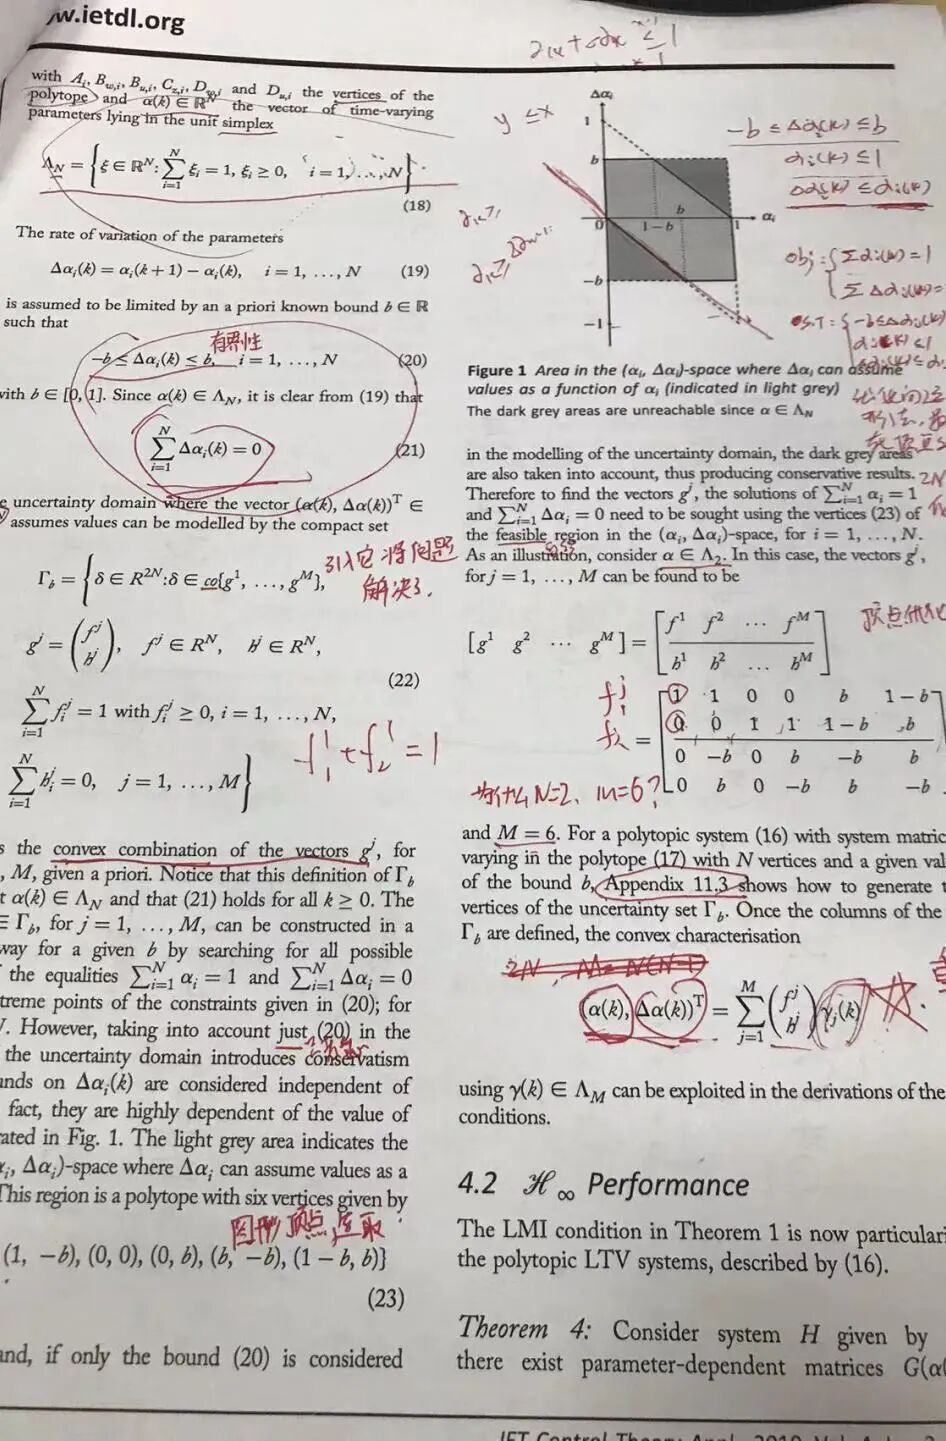 w.ietdl.org
with A_i, B_{w,i}, B_{u,i}, C_{z,i}, D_{w,i} and D_{u,i} the vertices of the
polytope and α(k) ∈ ℝ^N the vector of time-varying
parameters lying in the unit simplex
Λ_N = { ξ ∈ ℝ^N: ∑_{i=1}^{N} ξ_i = 1, ξ_i ≥ 0, i = 1, ..., N }
(18)
The rate of variation of the parameters
Δα_i(k) = α_i(k + 1) − α_i(k), i = 1, ..., N (19)
is assumed to be limited by an a priori known bound b ∈ ℝ
such that
有界性
−b ≤ Δα_i(k) ≤ b, i = 1, ..., N (20)
with b ∈ [0, 1]. Since α(k) ∈ Λ_N, it is clear from (19) that
∑_{i=1}^{N} Δα_i(k) = 0 (21)
e uncertainty domain where the vector (α(k), Δα(k))^T ∈
assumes values can be modelled by the compact set
引入它将问题
解决了.
Γ_b = { δ ∈ R^{2N}: δ ∈ co{g^1, ..., g^M},
g^j = (f^j h^j), f^j ∈ R^N, h^j ∈ R^N,
(22)
∑_{i=1}^{N} f_i^j = 1 with f_i^j ≥ 0, i = 1, ..., N,
f_1^1 + f_2^1 = 1
∑_{i=1}^{N} h_i^j = 0, j = 1, ..., M }
s the convex combination of the vectors g^j, for
, M, given a priori. Notice that this definition of Γ_b
t α(k) ∈ Λ_N and that (21) holds for all k ≥ 0. The
∈ Γ_b, for j = 1, ..., M, can be constructed in a
way for a given b by searching for all possible
f the equalities ∑_{i=1}^{N} α_i = 1 and ∑_{i=1}^{N} Δα_i = 0
treme points of the constraints given in (20); for
. However, taking into account just (20) in the
the uncertainty domain introduces conservatism
unds on Δα_i(k) are considered independent of
fact, they are highly dependent of the value of
rated in Fig. 1. The light grey area indicates the
α_i, Δα_i)-space where Δα_i can assume values as a
This region is a polytope with six vertices given by
图形顶点,直取
(1, −b), (0, 0), (0, b), (b, −b), (1 − b, b)}
(23)
and, if only the bound (20) is considered
y ≤ x
Δα_i
1
b
0
b
1−b
1
α_i
−b
−1
−b ≤ Δα_i(k) ≤ b
α_i(k) ≤ 1
Δα_i(k) ≤ α_i(k)
obj: { ∑α_i(k) = 1
∑Δα_i(k) =
S.T: { −b ≤ Δα_i(k)
Figure 1 Area in the (α_i, Δα_i)-space where Δα_i can assume
values as a function of α_i (indicated in light grey)
The dark grey areas are unreachable since α ∈ Λ_N
in the modelling of the uncertainty domain, the dark grey areas
are also taken into account, thus producing conservative results.
2N
Therefore to find the vectors g^j, the solutions of ∑_{i=1}^{N} α_i = 1
and ∑_{i=1}^{N} Δα_i = 0 need to be sought using the vertices (23) of
the feasible region in the (α_i, Δα_i)-space, for i = 1, ..., N.
As an illustration, consider α ∈ Λ_2. In this case, the vectors g^j,
for j = 1, ..., M can be found to be
[g^1 g^2 ⋯ g^M] = [ f^1 f^2 ⋯ f^M
h^1 h^2 ... h^M ]
f_1^j
1 1 0 0 b 1 − b
f_2
0 0 1 1 1 − b b
=
0 −b 0 b −b b
0 b 0 −b b −b
为什么 N=2、m=6?
and M = 6. For a polytopic system (16) with system matric
varying in the polytope (17) with N vertices and a given val
of the bound b, Appendix 11.3 shows how to generate t
vertices of the uncertainty set Γ_b. Once the columns of the
Γ_b are defined, the convex characterisation
(α(k), Δα(k))^T = ∑_{j=1}^{M} (f^j h^j) γ_j(k)
using γ(k) ∈ Λ_M can be exploited in the derivations of the
conditions.
4.2 ℋ_∞ Performance
The LMI condition in Theorem 1 is now particulari
the polytopic LTV systems, described by (16).
Theorem 4: Consider system H given by
there exist parameter-dependent matrices G(α(